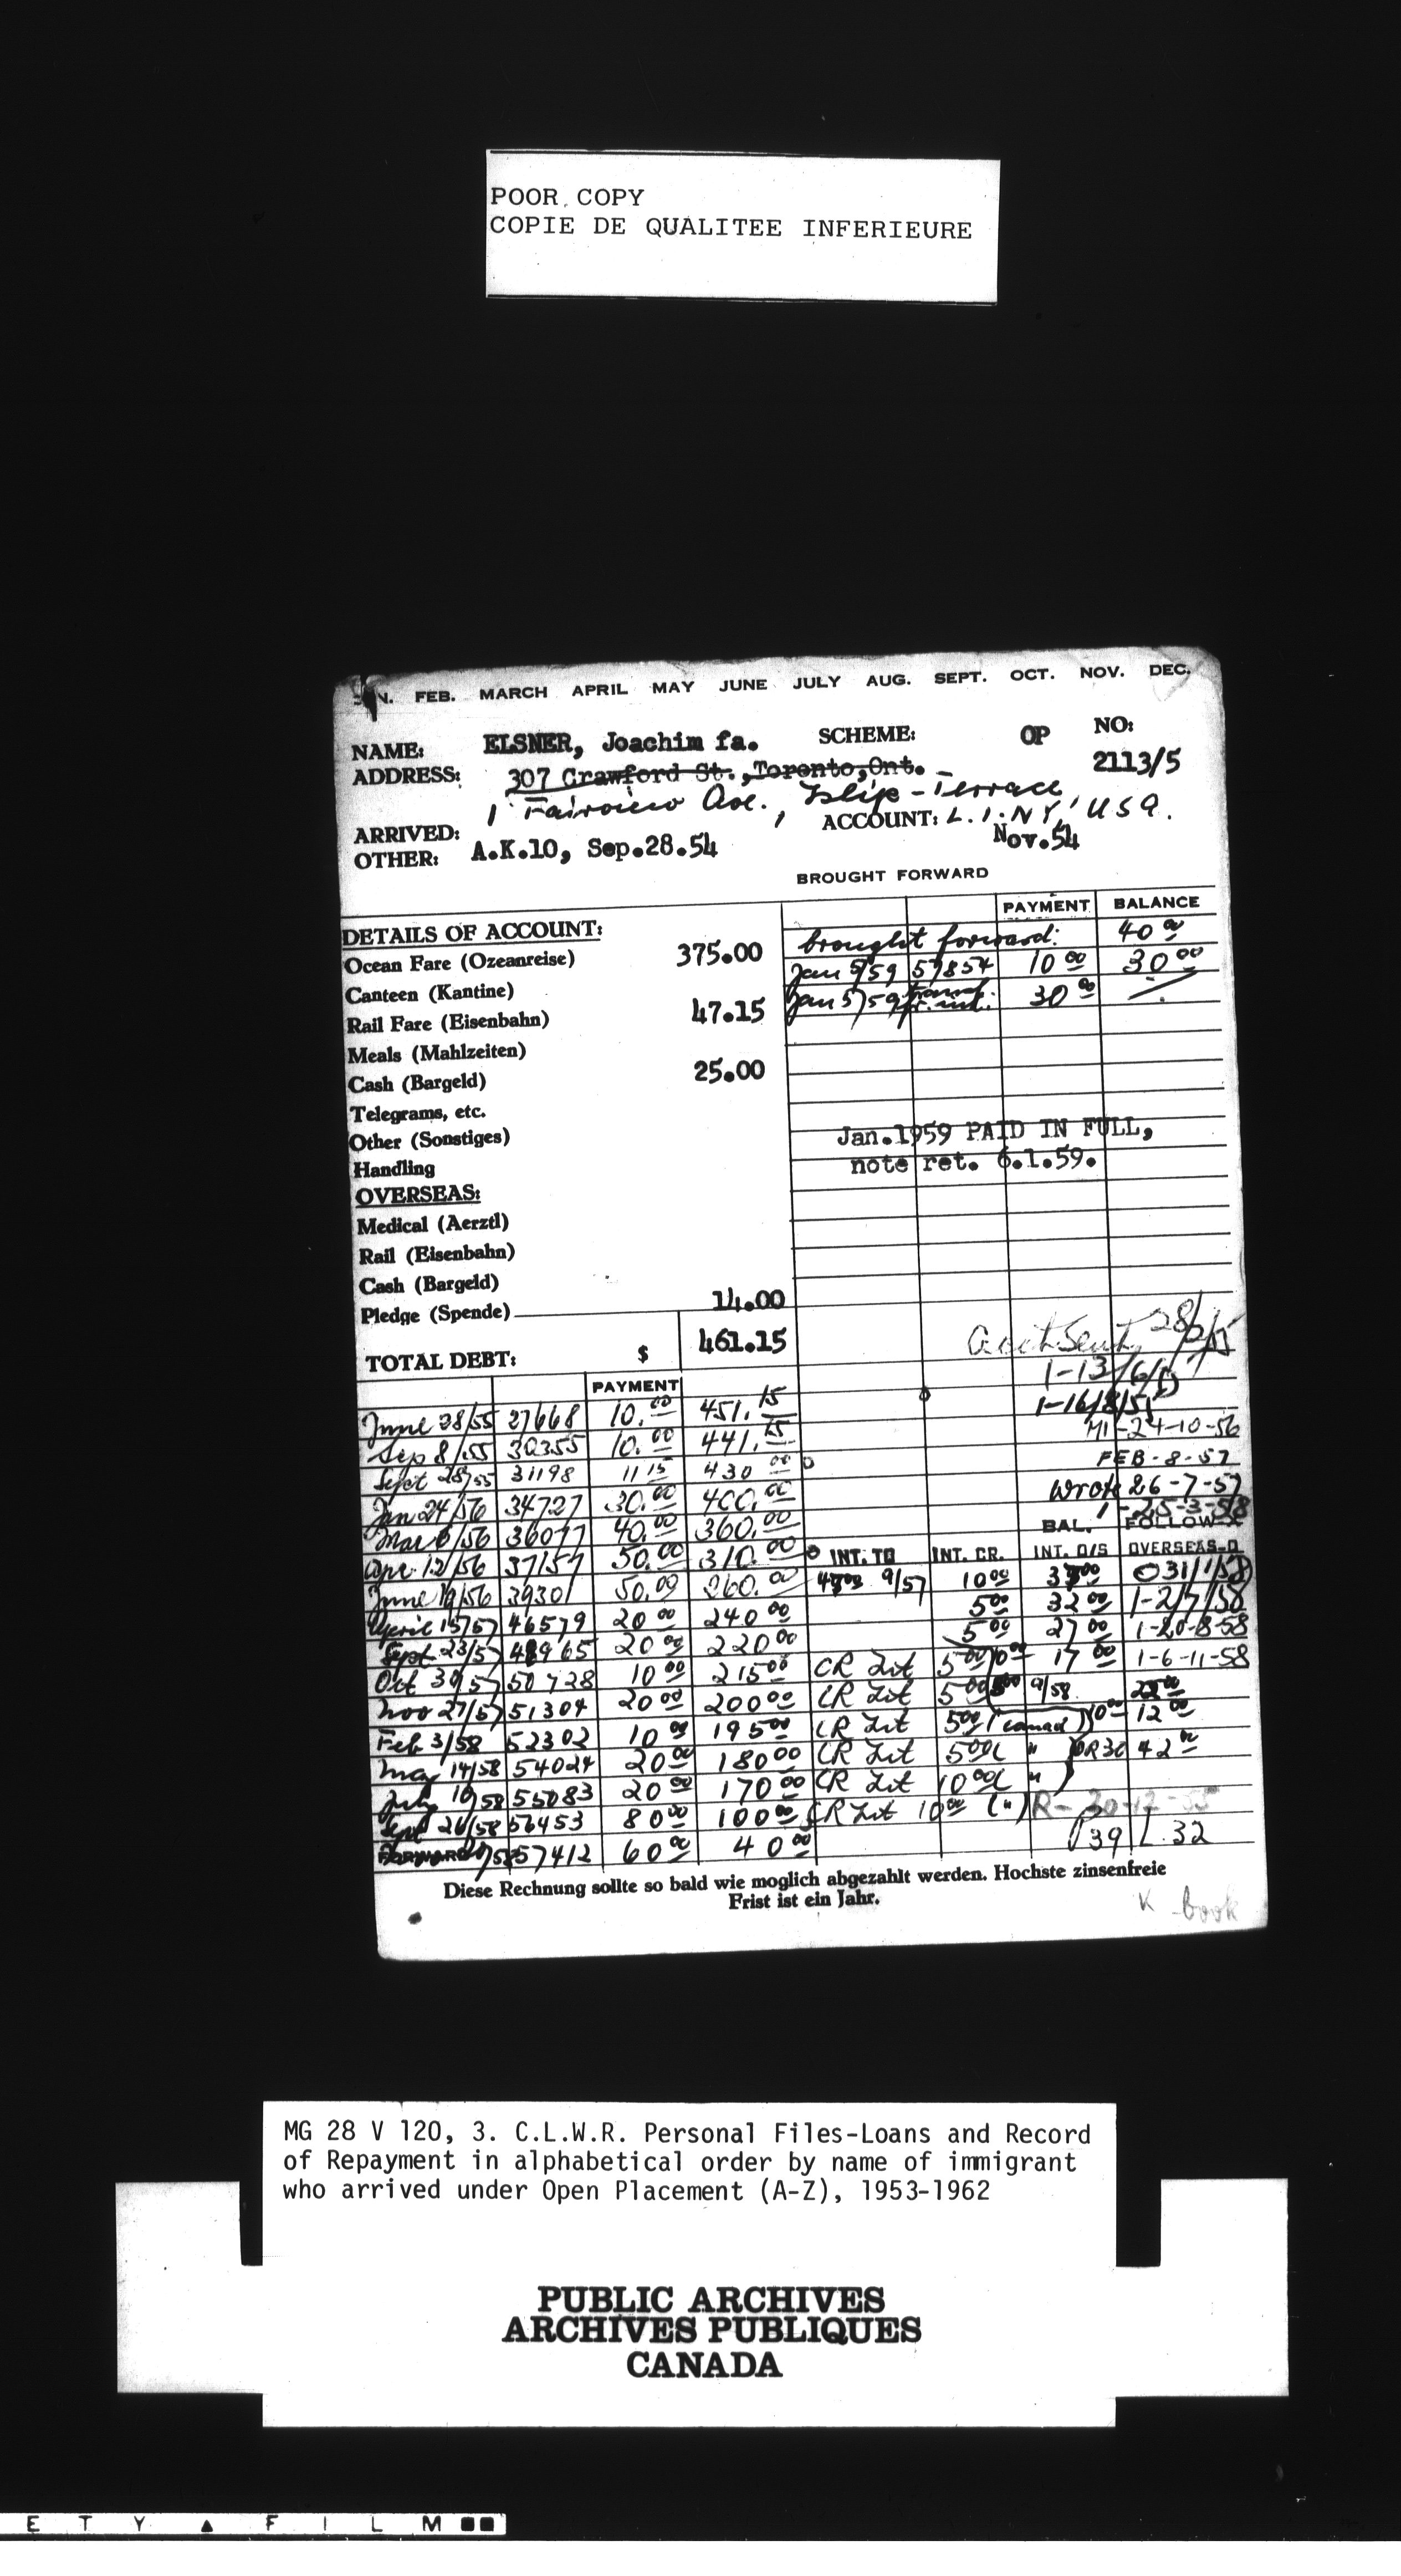 POOR COPY
COPIE DE QUALITEE INFERIEURE
N. FEB. MARCH APRIL MAY JUNE JULY AUG. SEPT. OCT. NOV. DEC.
NAME: ELSNER, Joachim fa. SCHEME: OP NO:
ADDRESS: 307 Crawford St., Toronto, Ont. 2113/5
1 Fairview Ave., Islip-Terrace
ARRIVED: ACCOUNT: L.I. NY, USA.
OTHER: A.K.10, Sep.28.54 Nov.54
BROUGHT FORWARD
PAYMENT BALANCE
DETAILS OF ACCOUNT: brought forward: 40 00
Ocean Fare (Ozeanreise) 375.00 Jan 5/59 57854 10 00 30 00
Canteen (Kantine) Jan 5/59 transf. fr. int. 30 00
Rail Fare (Eisenbahn) 47.15
Meals (Mahlzeiten)
Cash (Bargeld) 25.00
Telegrams, etc.
Other (Sonstiges) Jan.1959 PAID IN FULL,
Handling note ret. 6.1.59.
OVERSEAS:
Medical (Aerztl)
Rail (Eisenbahn)
Cash (Bargeld)
Pledge (Spende) 14.00
TOTAL DEBT: $ 461.15 Acct Sent 28/2/55
1-13/6/55
PAYMENT
June 28/55 27668 10.00 451.15 1-16/8/55
Sep 8/55 30355 10.00 441.15 M1-24-10-56
Sept 28/55 31198 11 15 430 00 FEB-8-57
Jan 24/56 34727 30.00 400.00 Wrote 26-7-57
Mar 6/56 36077 40.00 360.00 1-25-3-58
BAL. FOLLOW
Apr 12/56 37157 50.00 310.00 INT. TO INT. CR. INT. O/S OVERSEAS-D
June 19/56 39301 50.00 260.00 9/57 10 00 031/1/58
April 15/57 46579 20 00 240 00 5 00 32 00 1-2/7/58
Sept 23/57 48965 20 00 220 00 5 00 27 00 1-20-8-58
Oct 30/57 50728 10 00 215 00 CR Int 5 00 10 00 17 00 1-6-11-58
Nov 27/57 51304 20 00 200 00 CR Int 5 00 9/58 22 00
Feb 3/58 52302 10 00 195 00 CR Int 5 00 (canad) 10 00 12 00
May 14/58 54024 20 00 180 00 CR Int 5 00 " DR 30 42 00
July 10/58 55083 20 00 170 00 CR Int 10 00 "
Sept 26/58 56453 80 00 100 00 CR Int 10 00 (") R-30-12-55
FORWARD 57412 60 00 40 00 39 L. 32
Diese Rechnung sollte so bald wie moglich abgezahlt werden. Hochste zinsenfreie
Frist ist ein Jahr.
K book
MG 28 V 120, 3. C.L.W.R. Personal Files-Loans and Record
of Repayment in alphabetical order by name of immigrant
who arrived under Open Placement (A-Z), 1953-1962
PUBLIC ARCHIVES
ARCHIVES PUBLIQUES
CANADA
E T Y ▲ F I L M